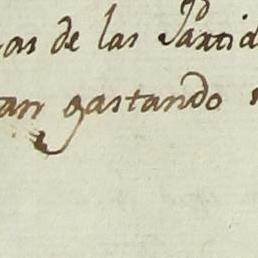 as de las Partid
an gastando